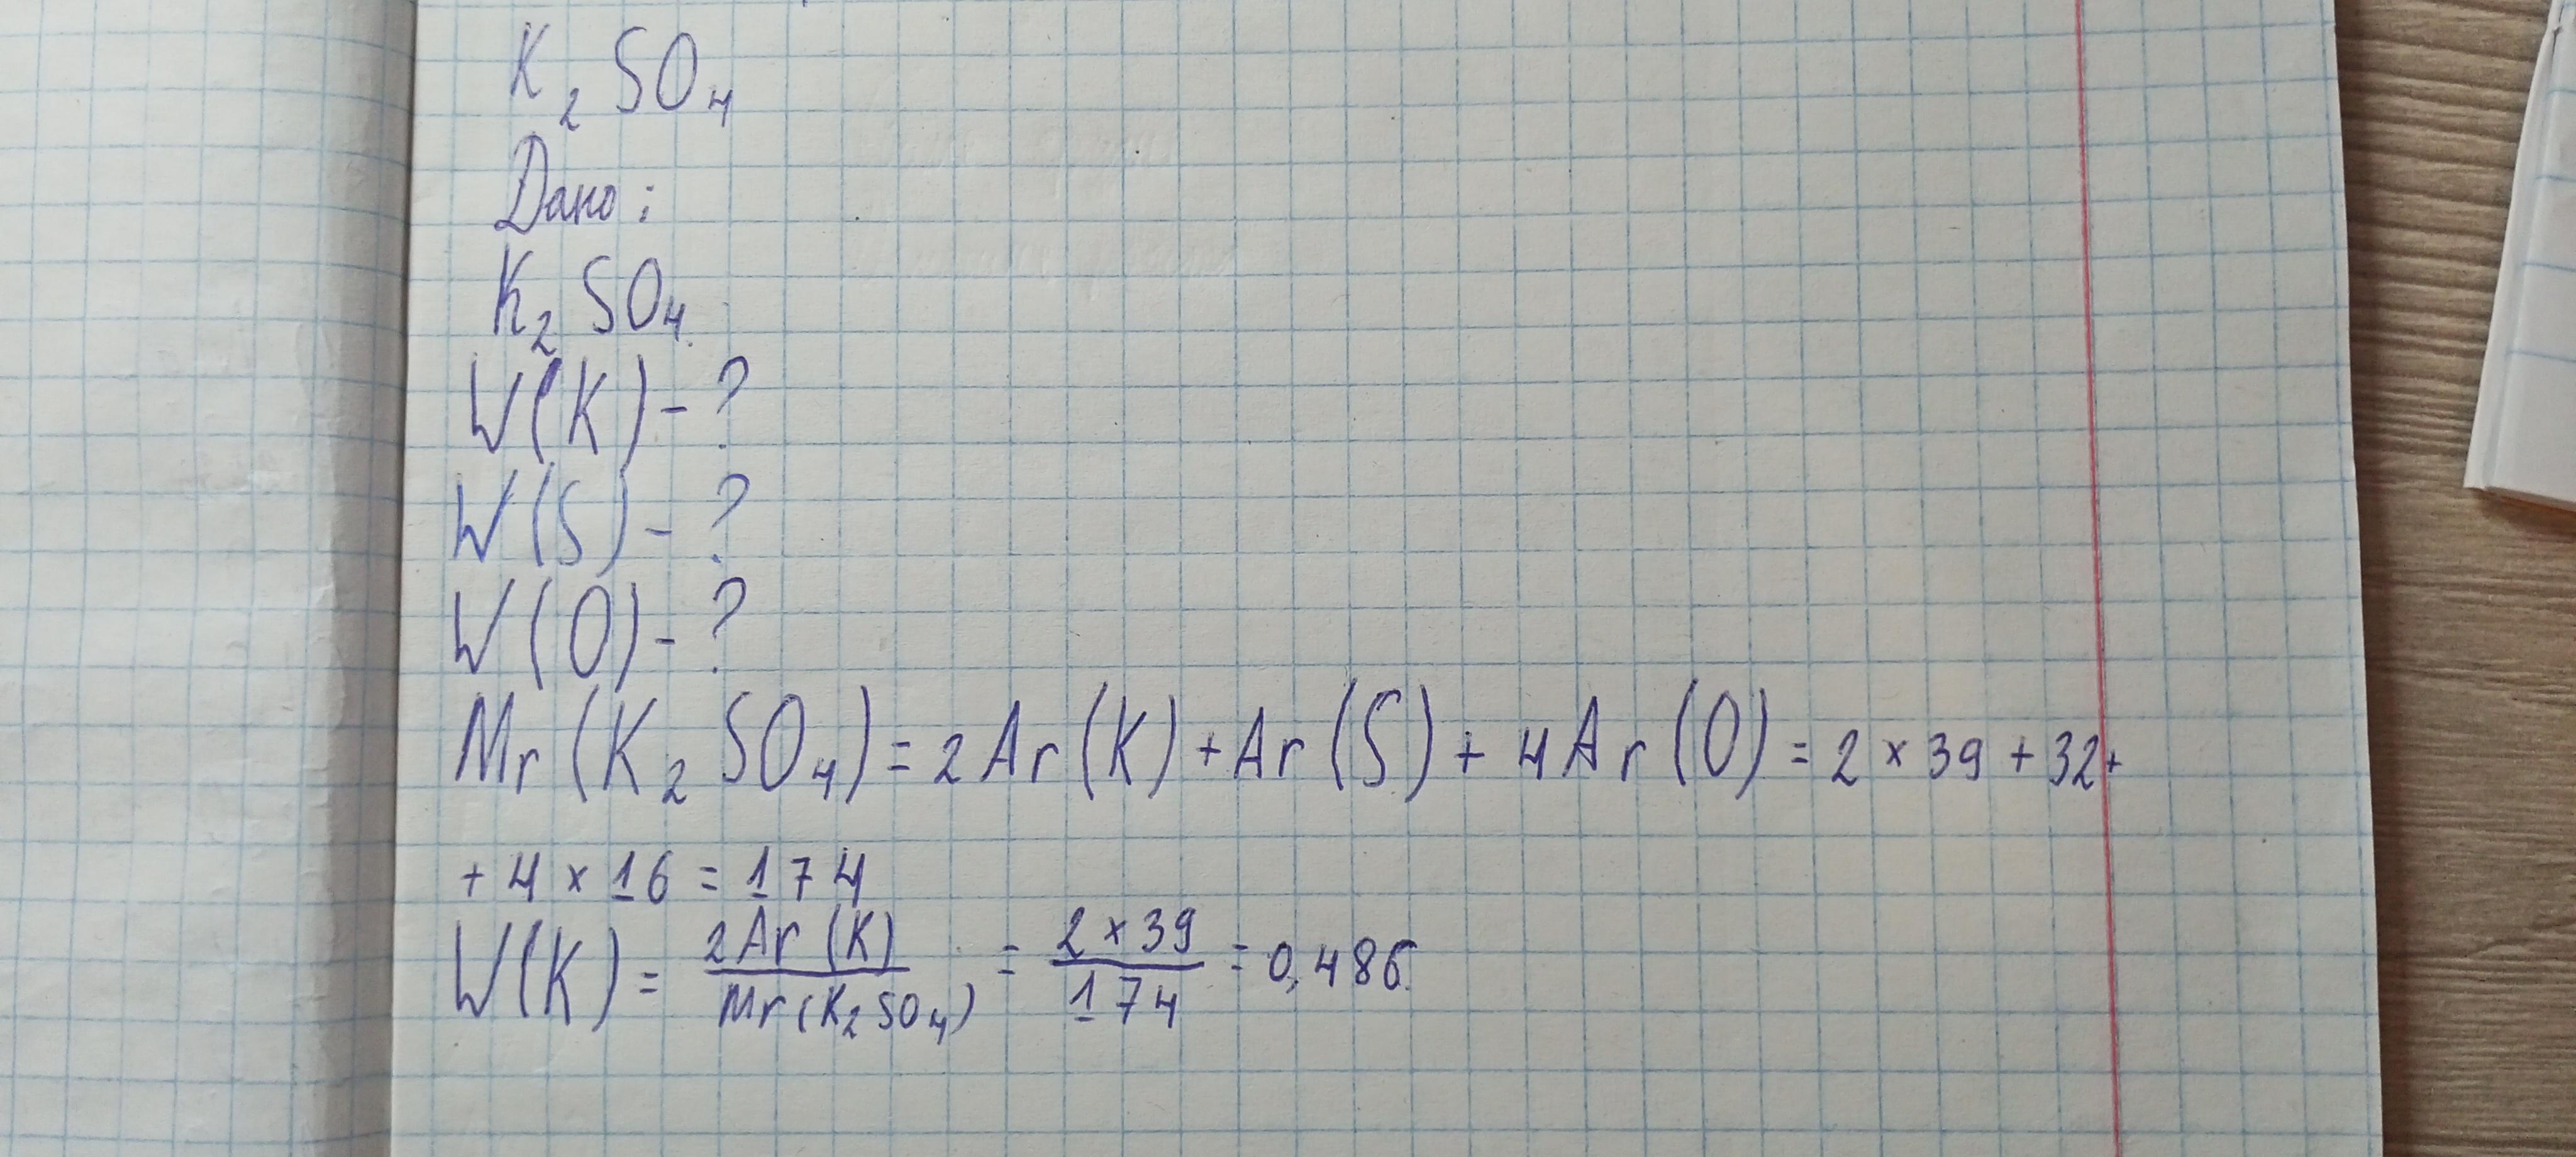 K₂SO₄
Дано:
K₂SO₄
W(K)-?
W(S)-?
W(O)-?
Mr(K₂SO₄)=2Ar(K)+Ar(S)+4Ar(O)=2×39+32+
+4×16=174
W(K)= 2Ar(K)/Mr(K₂SO₄) = 2×39/174 = 0,486